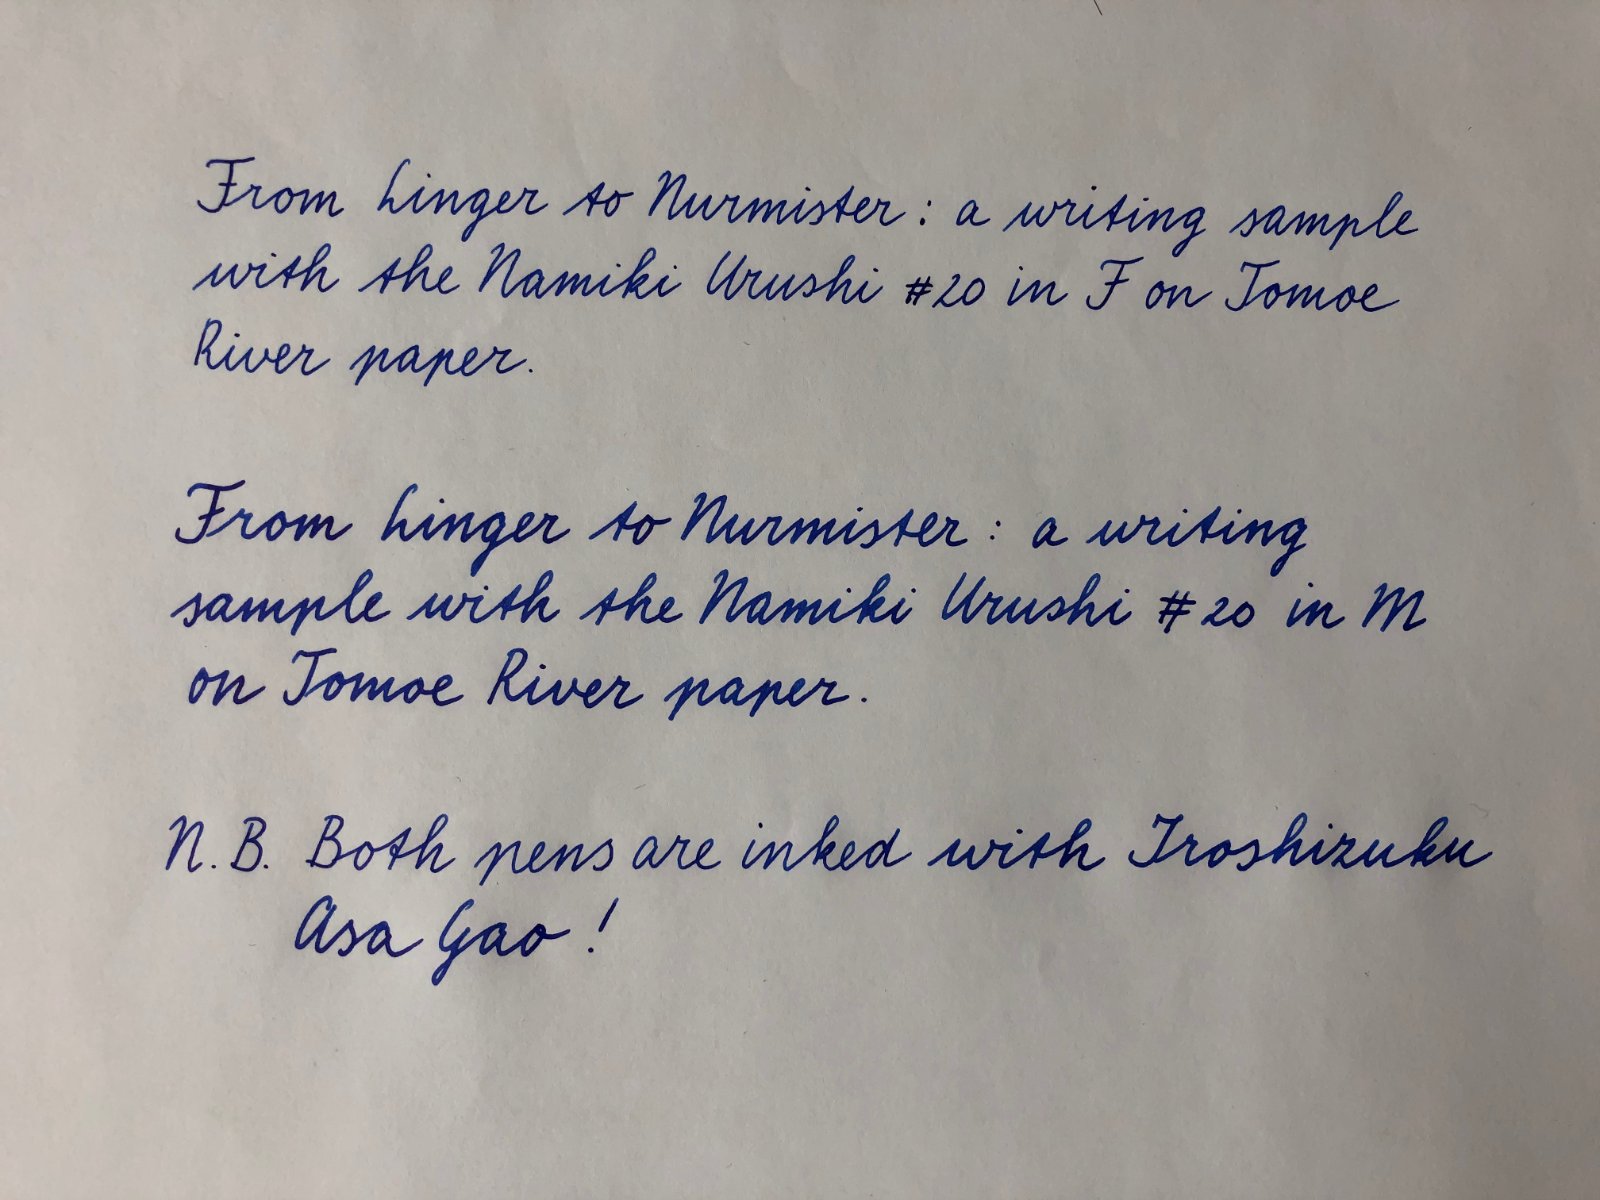 From Linger to Nurmister: a writing sample
with the Namiki Urushi #20 in F on Tomoe
River paper.
From Linger to Nurmister: a writing
sample with the Namiki Urushi #20 in M
on Tomoe River paper.
N.B. Both pens are inked with Iroshizuku
Asa Gao!